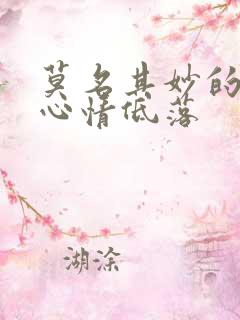 莫名其妙的
心情低落
湖涂